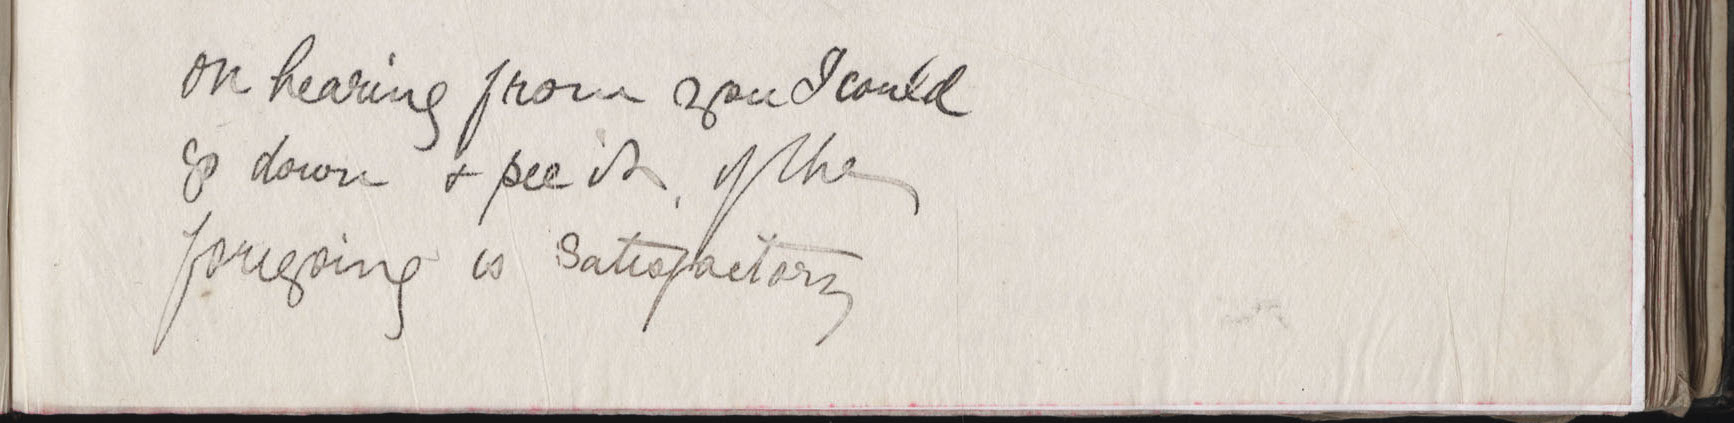 on hearing from you I could
go down & see it, if the
foregoing is Satisfactory